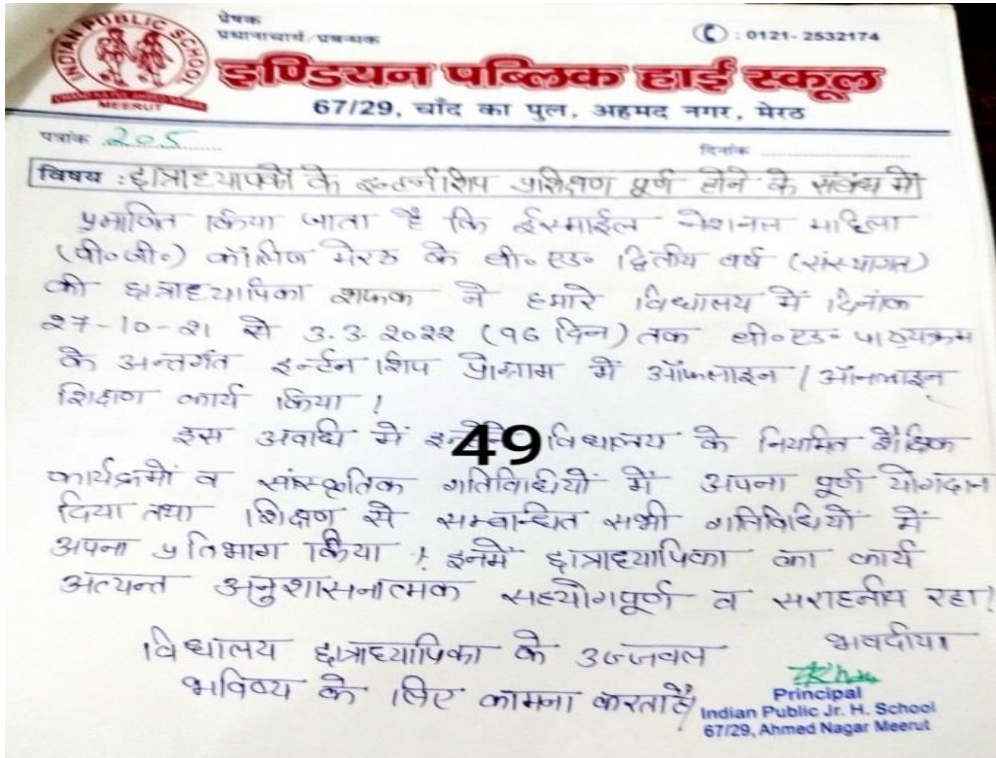 INDIAN PUBLIC SCHOOL
MEERUT
प्रेषक
प्रधानाचार्य/प्रबन्धक
: 0121-2532174
इण्डियन पब्लिक हाई स्कूल
67/29, चाँद का पुल, अहमद नगर, मेरठ
पत्रांक 205
दिनांक
विषय : छात्राध्यापकों के इन्टर्नशिप प्रशिक्षण पूर्ण होने के संबंध में
प्रमाणित किया जाता है कि ईस्माईल नेशनल महिला
(पी०जी०) कॉलिज मेरठ के बी० एड० द्वितीय वर्ष (संस्थागत)
की छात्राध्यापिका शफक ने हमारे विधालय में दिनांक
27-10-21 से 3.3.2022 (96 दिन) तक बी०एड० पाठ्यक्रम
के अन्तर्गत इन्टर्न शिप प्रोग्राम में ऑफलाइन / ऑनलाइन
शिक्षण कार्य किया !
इस अवधि में 49 विधालय के नियमित शैक्षिक
कार्यक्रमों व सांस्कृतिक गतिविधियों में अपना पूर्ण योगदान
दिया तथा शिक्षण से सम्बन्धित सभी गतिविधियों में
अपना प्रतिभाग किया ! इनमें छात्राध्यापिका का कार्य
अत्यन्त अनुशासनात्मक सहयोगपूर्ण व सराहनीय रहा !
विधालय छात्राध्यापिका के उज्जवल
भविष्य के लिए कामना करता है !
भवदीया
Principal
Indian Public Jr. H. School
67/29, Ahmed Nagar Meerut